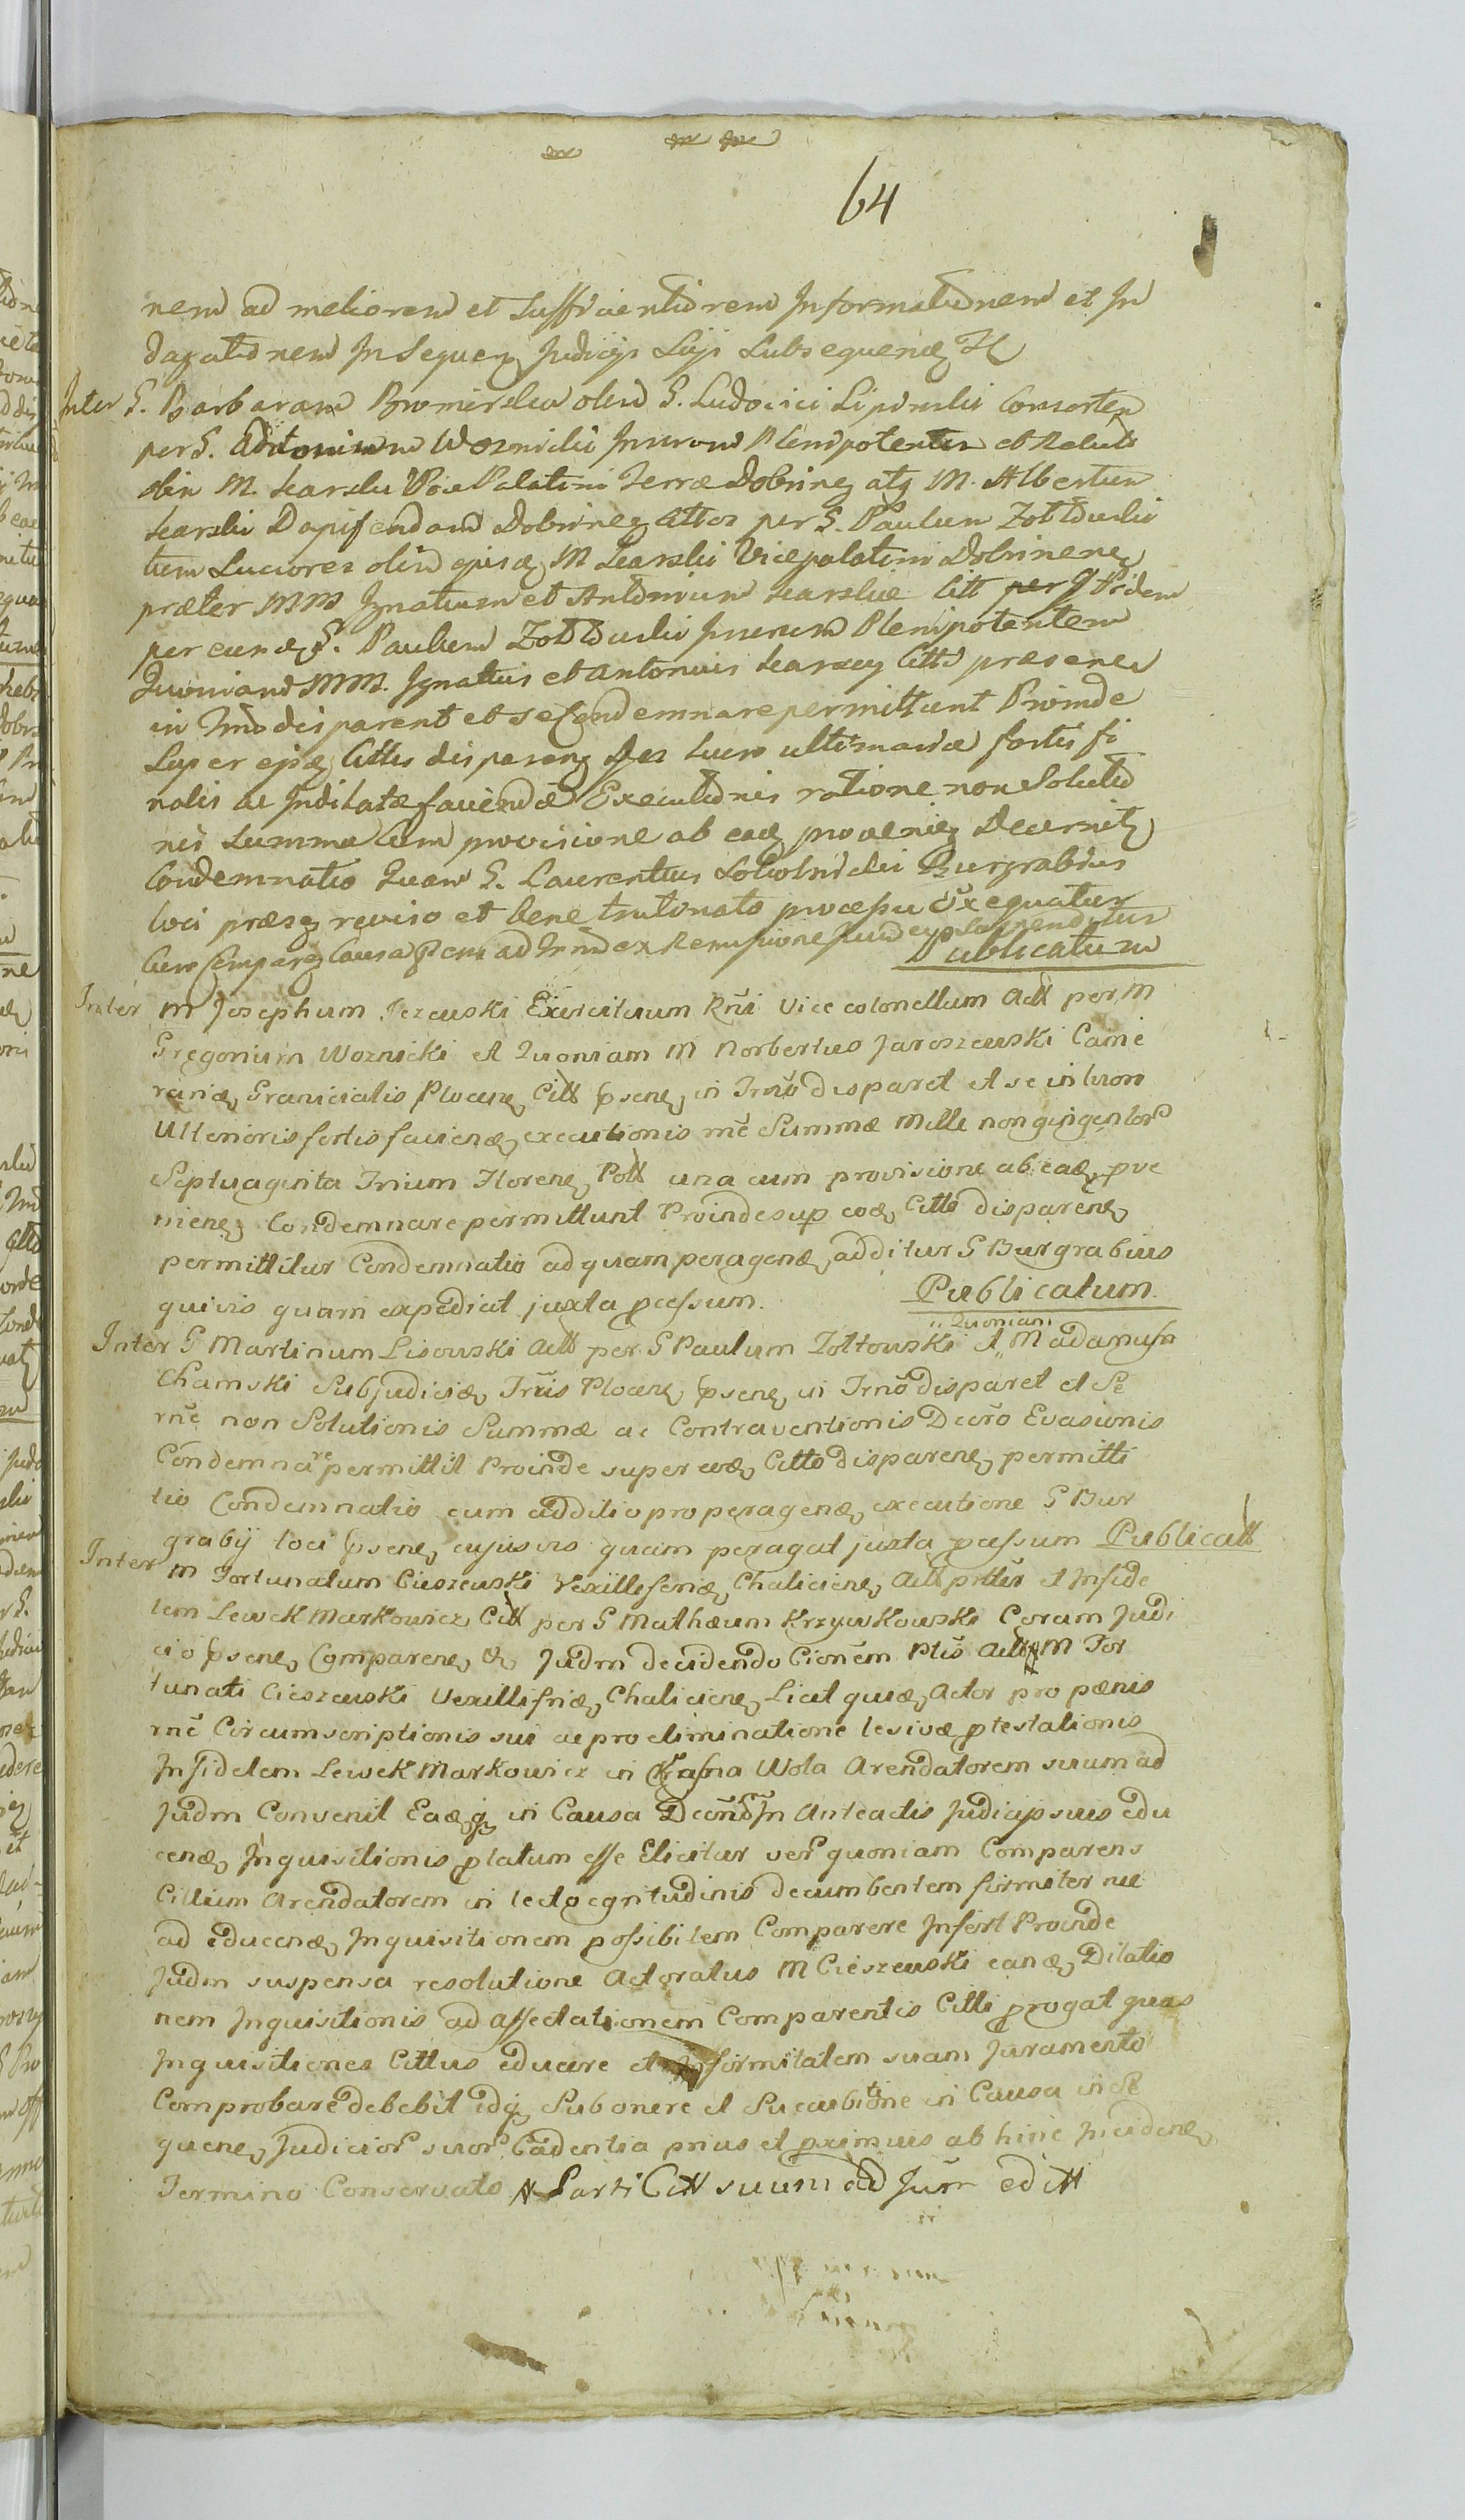 64
nem ad meliorem et sufficientiorem Informationem et In
dagationem In Sequen Judicijs Suis Subsequen
Inter G. Barbaram Bromirska olim G. Ludovici Lipinski Consortem
per G. Antonium Woznicki Juratum Plenipotentem et
olim M. Karski Vice Palatini Terræ Dobrinen atq M. Albertum
Karski Dapiferidam Dobrinen Attos per G. Paulum Zołtowski
tum Succores olim ejusd M Karski Vicepalatini Dobrinen
præter MM Ignatium et Antonium Karskie Citt per Pridem
per eund G. Paulum Zołtowski Juratum Plenipotentem
Quoniam MM. Ignatius et Antonius Karscy Citti præsen
in Trno disparent et se Condemnare permittunt Proinde
Super ejsd Cittis disparen pro Lucro ultimariæ fortis fi
nalis ac Inditatæ faciendæ Executionis ratione non Solutio
nis Summæ Cum provisione ab ead provenien Decernit
Condemnatio Quam G. Laurentius Sokolnicki Burgrabius
loci præsen reviso et bene trutinato processu Exequatur
Cum Comparen Causa ad Trnum ex Remissione
Publicatum
Inter M Josephum Jezewski Exercituum Rni Vice colonellum Act per M
Gregorium Woznicki et Quoniam M Norbertus Jaroszewski Came
rarid Granicialis Plocen Citt psen in Trno disparet et se in lucro
Ulterioris fortis faciend executionis rne Summæ Mille nongingentor
Septuaginta Trium Floren Poll una cum provisione ab ead pve
nien Condemnare permittunt Proinde sup eod Citto disparen
permittitur Condemnatio ad quam peragend additur G Burgrabius
quivis quam expediat juxta pcessum. Publicatum.
Inter G Martinum Lisowski Act per G Paulum Zołtowski et „Quoniam „ M adamus
Chamski Subjudicid Trris Plocen psen in Trno disparet et Se
rne non Solutionis Summæ ac Contraventionis Decro Evasionis
Condemnare permittit Proinde super eod Citto disparen permitti
tio Condemnatio cum additio pro peragend executione G Bur
grabij loci psen cujusvis quam peragat juxta pcessum Publicatt
Inter M Fortunatum Cieszewski Vexilliferid Chalicien Act et Infide
lem Lewek Markowicz Citt per G Mathæum Krzywkowski Coram Judi
cio psen Comparen & Judm decidendo Cionem Ptis Act M For
tunati Cieszewski Vexillifrid Chalicien Licet quid Actor pro pænis
rne Circumscriptionis sui ac pro eliminatione lesivæ ptestationis
Infidelem Lewek Markowicz in Krasna Wola Arendatorem suum ad
Judm Convenit Ead in Causa Anteactis Judicijs suis edu
cend Inquisitionis platum esse Elicitur ver quoniam Comparens
Cittum Arendatorem in lecto egritudinis decumbentem firmiter nec
ad educend Inquisitionem possibilem Comparere Infert Proinde
Judm suspensa resolutione Actoratus M Cieszewski eand Dilatio
nem Inquisitionis ad affectationem Comparentis Citti progat quas
Inquisitiones Cittus educere et Infirmitatem suam Juramento
Comprobare debebit idq Sub onere et Succubitione in Causa in Se
quen Judicior suor Cadentia prius et proximius ab hinc Inciden
Termino Conservato Parti Citt suum ad Jum